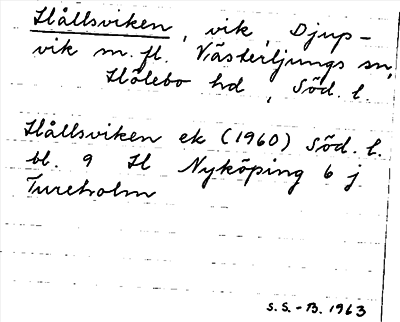 Hållsviken, vik, Djup-
vik m. fl. Västerljungs sn,
Hölebo hd, Söd. l.
Hållsviken ek (1960) Söd. l.
bl. 9 H Nyköping 6 j
Tureholm
S.S.-B. 1963